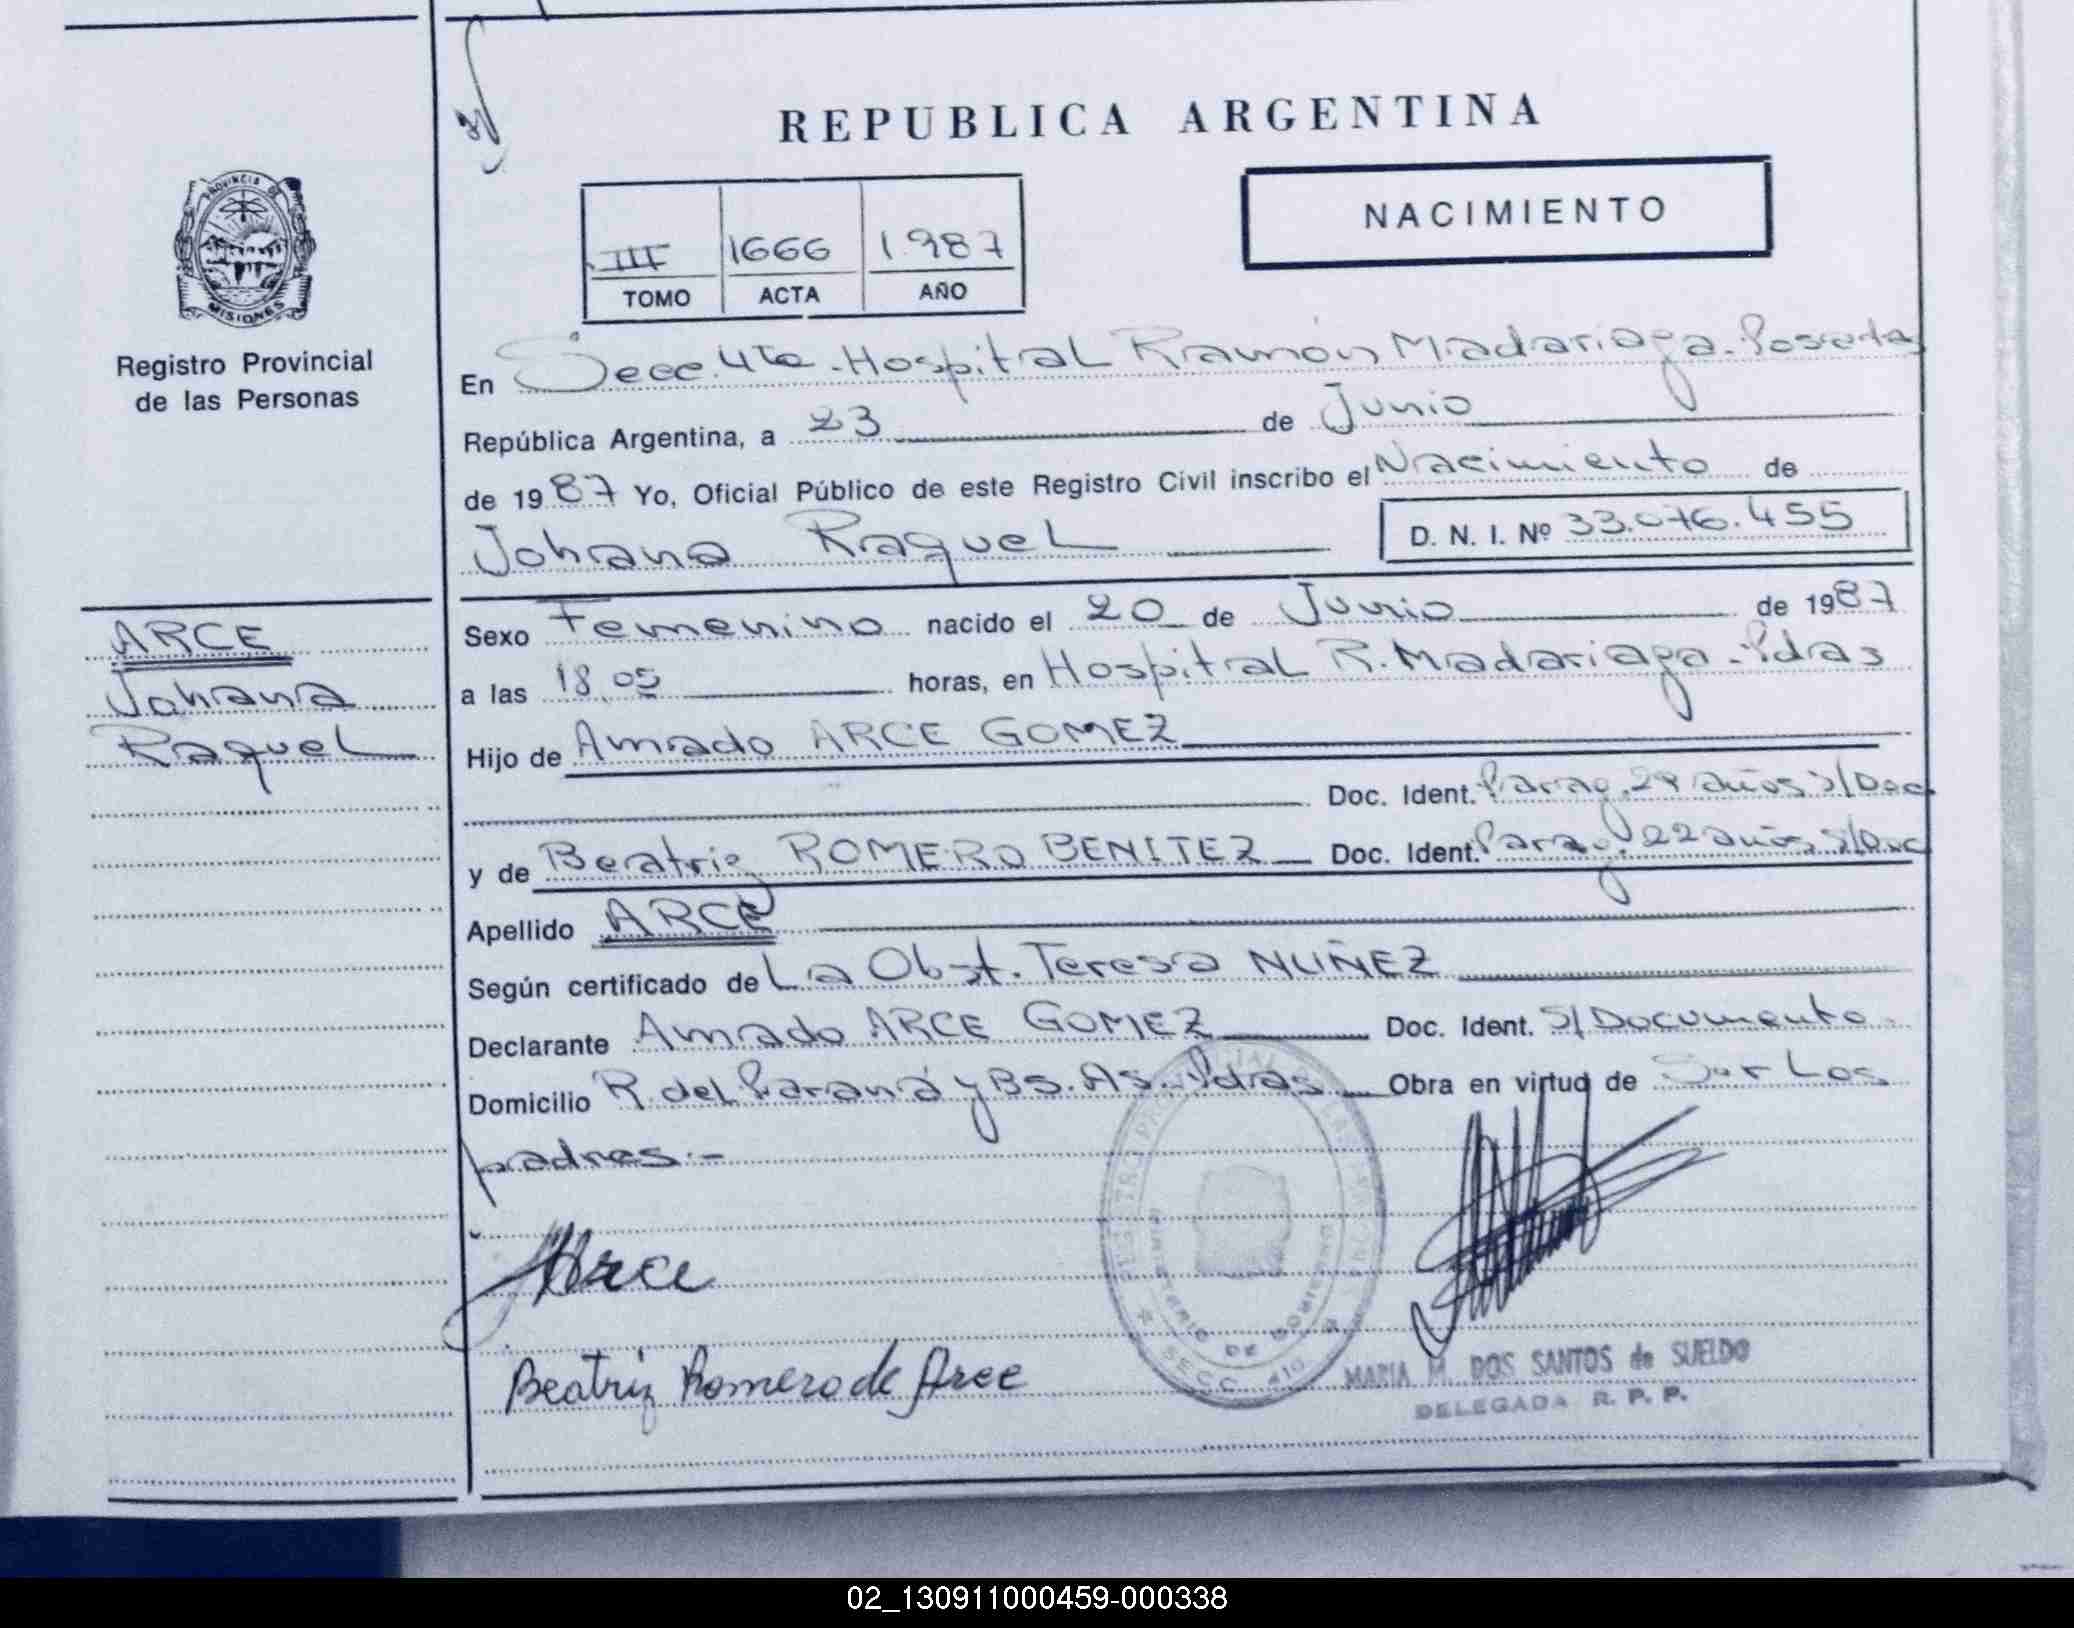 REPUBLICA ARGENTINA
NACIMIENTO
III 1666 1987
TOMO ACTA AÑO
PROVINCIA DE
MISIONES
Registro Provincial
de las Personas
ARCE
Johana
Raquel
En Secc. 4ta. Hospital Ramón Madariaga. Posadas
República Argentina, a 23 de Junio
de 1987 Yo, Oficial Público de este Registro Civil inscribo el Nacimiento de
Johana Raquel D. N. I. Nº 33.076.455
Sexo Femenino nacido el 20 de Junio de 1987
a las 18,05 horas, en Hospital R. Madariaga - Pdas
Hijo de Amado ARCE GOMEZ
Doc. Ident. Parag. 29 años s/Doc
y de Beatriz ROMERO BENITEZ Doc. Ident. Parag. 22 años s/Doc
Apellido ARCE
Según certificado de La Obst. Teresa NUÑEZ
Declarante Amado ARCE GOMEZ Doc. Ident. S/Documento.
Domicilio R. del Paraná y Bs. As. Pdas Obra en virtud de Ser Los
padres.-
Arce
Beatriz Romero de Arce
MINISTERIO DE GOBIERNO
SECC. 4TO
MARIA M. DOS SANTOS de SUELDO
DELEGADA R. P. P.
02_130911000459-000338